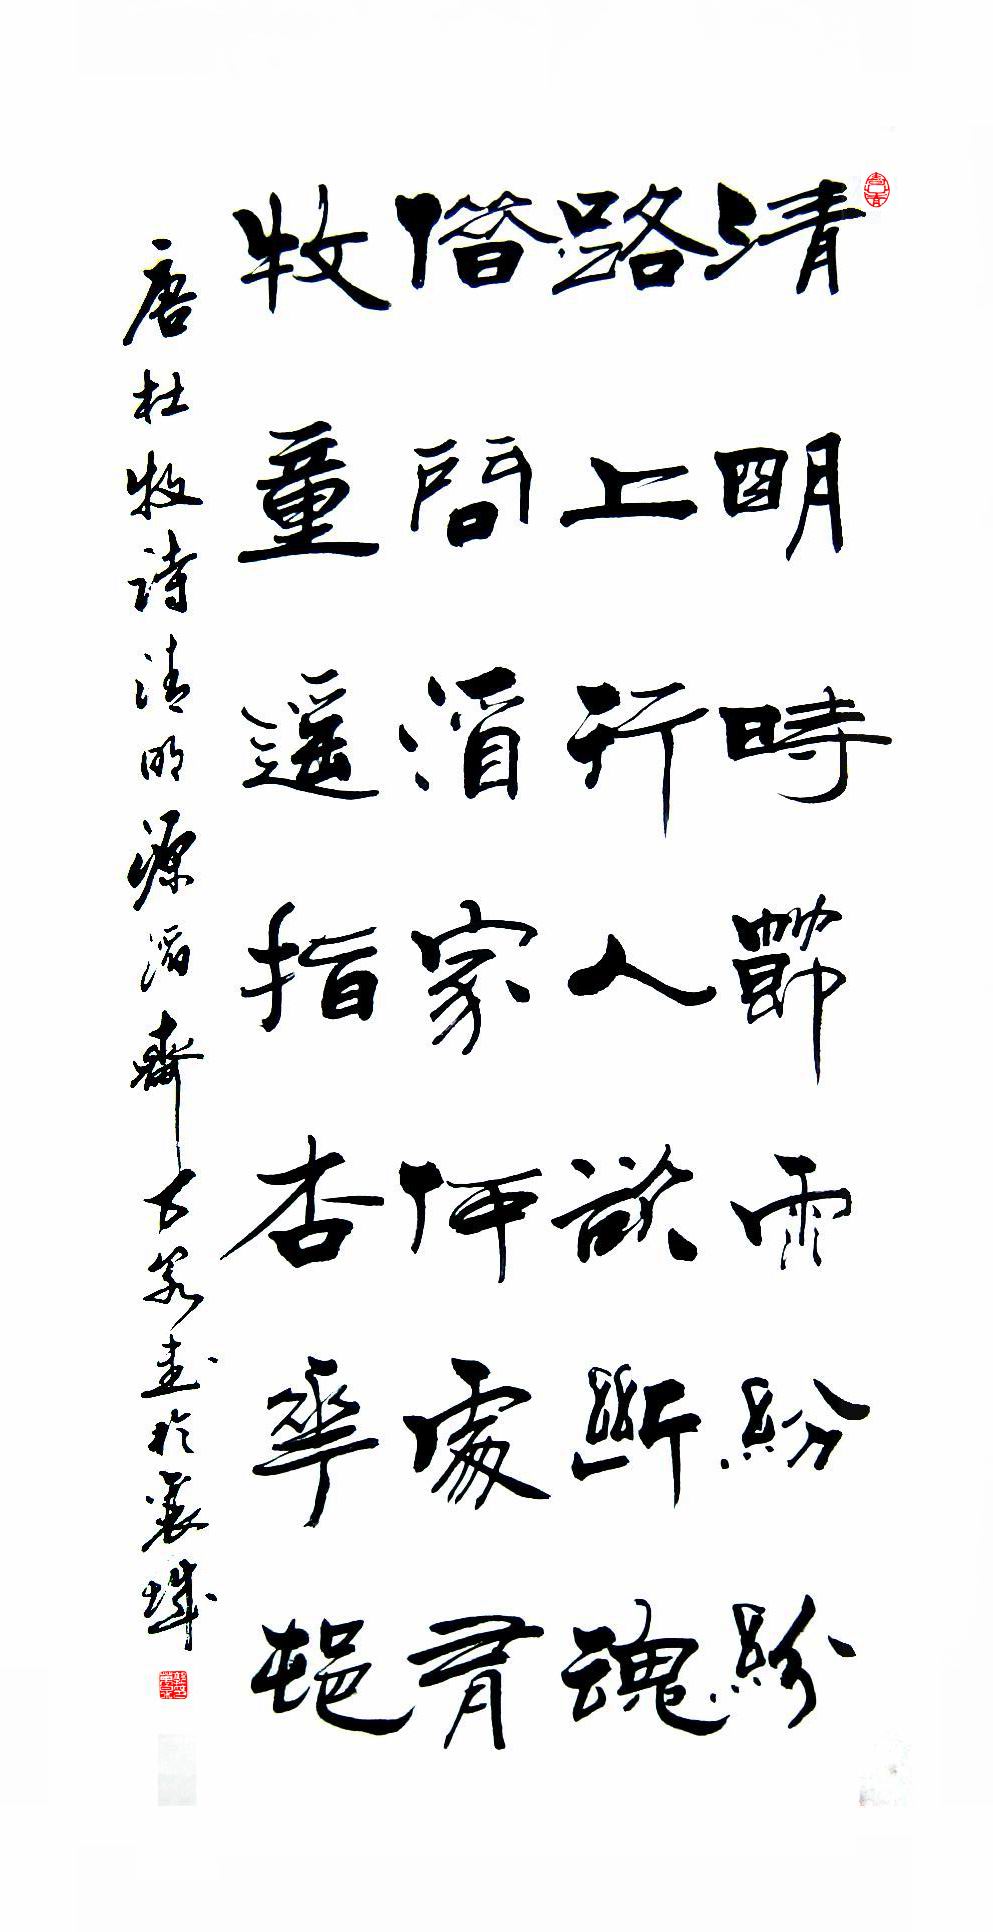 清明時節雨紛紛
路上行人欲斷魂
借問酒家何處有
牧童遥指杏華邨
唐杜牧詩清明源滔齋書於襄城